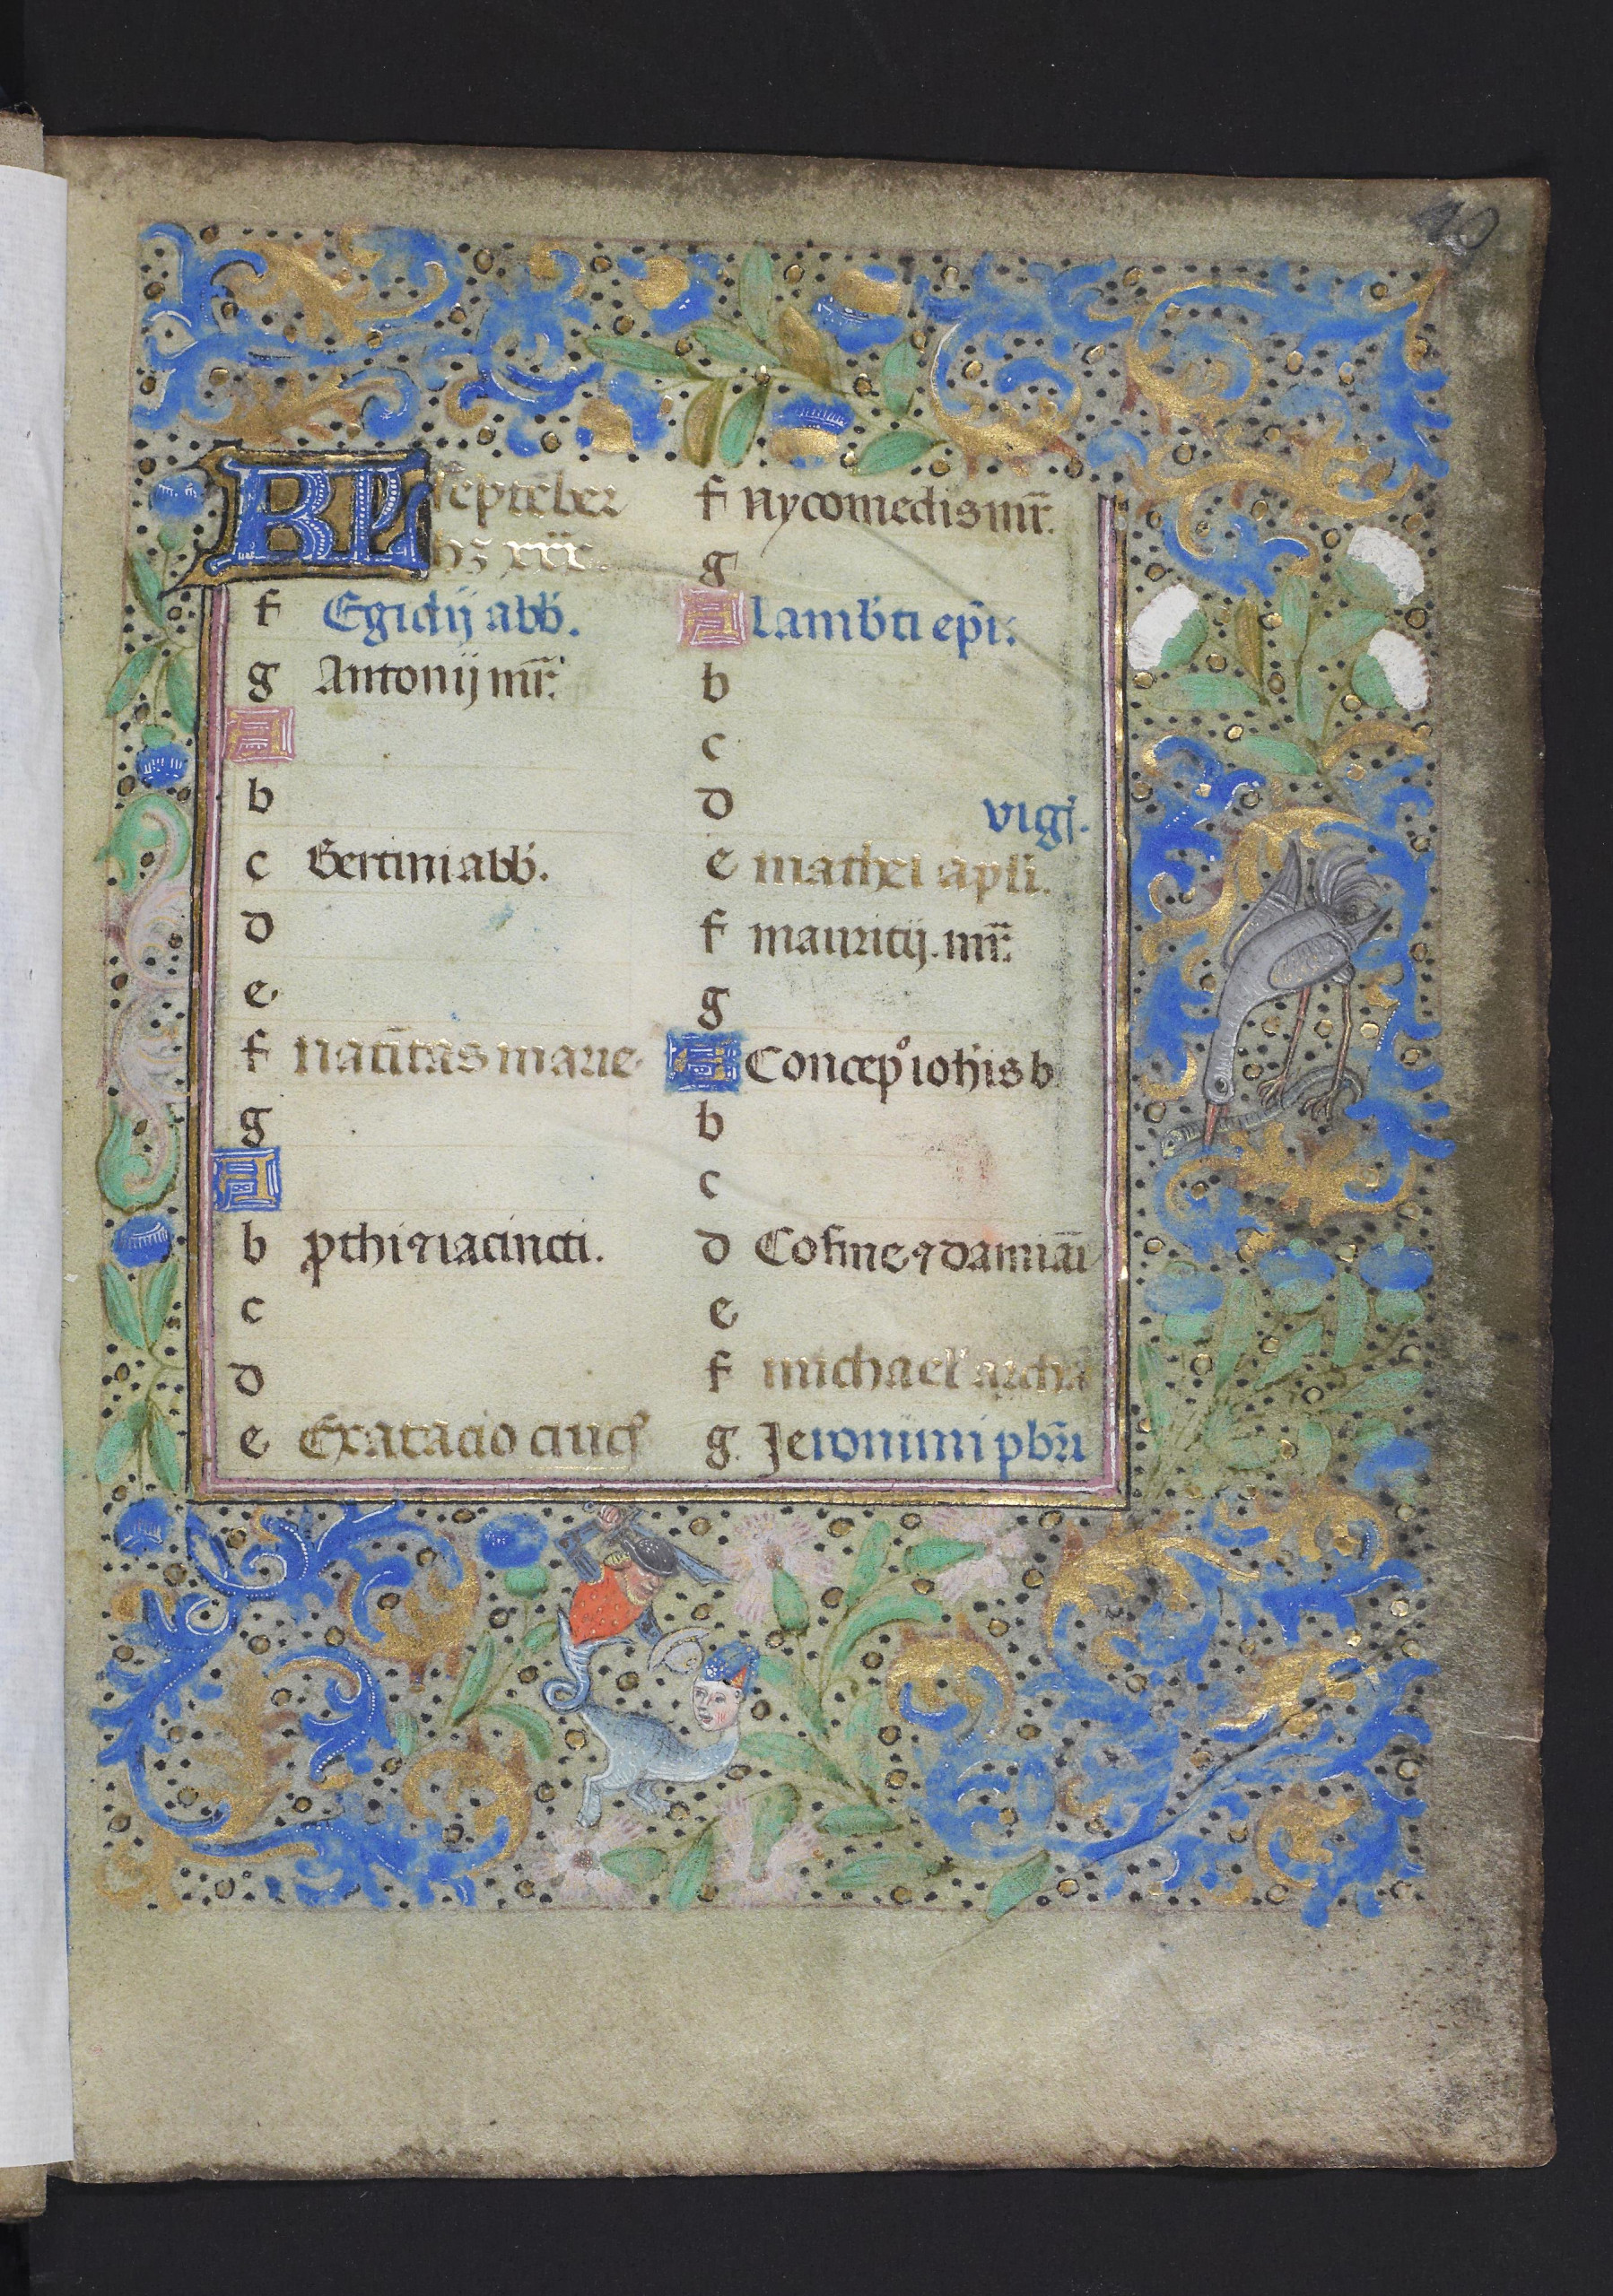 10
KL septēber
hꝫ xxx.
f Egidij abb̄.
g Antonij mr̄.
A
b
c Bertini abb̄.
d
e
f natītas marie
g
A
b ꝓthi ⁊ iacincti.
c
d
e Exaltacio cruc
f nycomedis mr̄.
g
A lamb̄ti ep̄i.
b
c
d vigł.
e mathei apli.
f mauricij. mr̄.
g
A Concep° ioh̄is b
b
c
d Cosme ⁊ damiāi
e
f michael arch
g Jeronimi pbr̄i